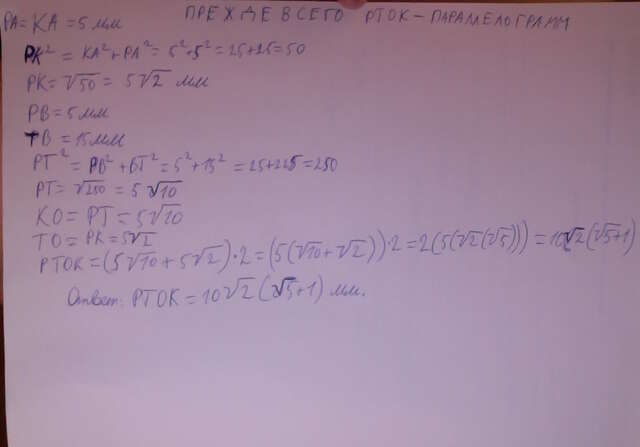 ПРЕЖДЕ ВСЕГО РТОК – ПАРАЛЛЕЛОГРАММ
PA = KA = 5 мм
PK² = KA² + PA² = 5² + 5² = 25 + 25 = 50
PK = √50 = 5√2 мм
PB = 5 мм
TB = 15 мм
PT² = PB² + BT² = 5² + 15² = 25 + 225 = 250
PT = √250 = 5√10
KO = PT = 5√10
TO = PK = 5√2
PTOK = (5√10 + 5√2) · 2 = (5(√10 + √2)) · 2 = 2(5(√2(√5))) = 10√2(√5+1)
Ответ: PTOK = 10√2(√5+1) мм.